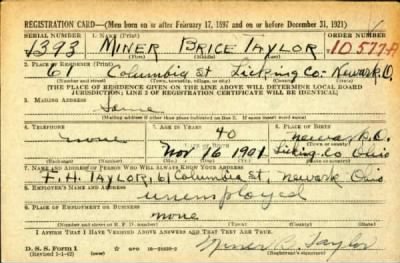 REGISTRATION CARD—(Men born on or after February 17, 1897 and on or before December 31, 1921)
SERIAL NUMBER 1. NAME (Print) ORDER NUMBER
1393 MINER BRICE TAYLOR 10577-A
(First) (Middle) (Last)
2. PLACE OF RESIDENCE (Print)
61 Columbia St Licking Co. Newark O.
(Number and street) (Town, township, village, or city) (County) (State)
[THE PLACE OF RESIDENCE GIVEN ON THE LINE ABOVE WILL DETERMINE LOCAL BOARD
JURISDICTION; LINE 2 OF REGISTRATION CERTIFICATE WILL BE IDENTICAL]
3. MAILING ADDRESS
Same
[Mailing address if other than place indicated on line 2. If same insert word same]
4. TELEPHONE 5. AGE IN YEARS 6. PLACE OF BIRTH
none 40 Newark, O.
DATE OF BIRTH (Town or county)
Nov 16 1901 Licking Co Ohio
(Exchange) (Number) (Mo.) (Day) (Yr.) (State or country)
7. NAME AND ADDRESS OF PERSON WHO WILL ALWAYS KNOW YOUR ADDRESS
H. TAYLOR, 61 Columbia St, Newark Ohio
8. EMPLOYER'S NAME AND ADDRESS
unemployed
9. PLACE OF EMPLOYMENT OR BUSINESS
none
(Number and street or R. F. D. number) (Town) (County) (State)
I AFFIRM THAT I HAVE VERIFIED ABOVE ANSWERS AND THAT THEY ARE TRUE.
D. S. S. Form 1
(Revised 1-1-42) GPO
Miner B. Taylor
(Registrant's signature)